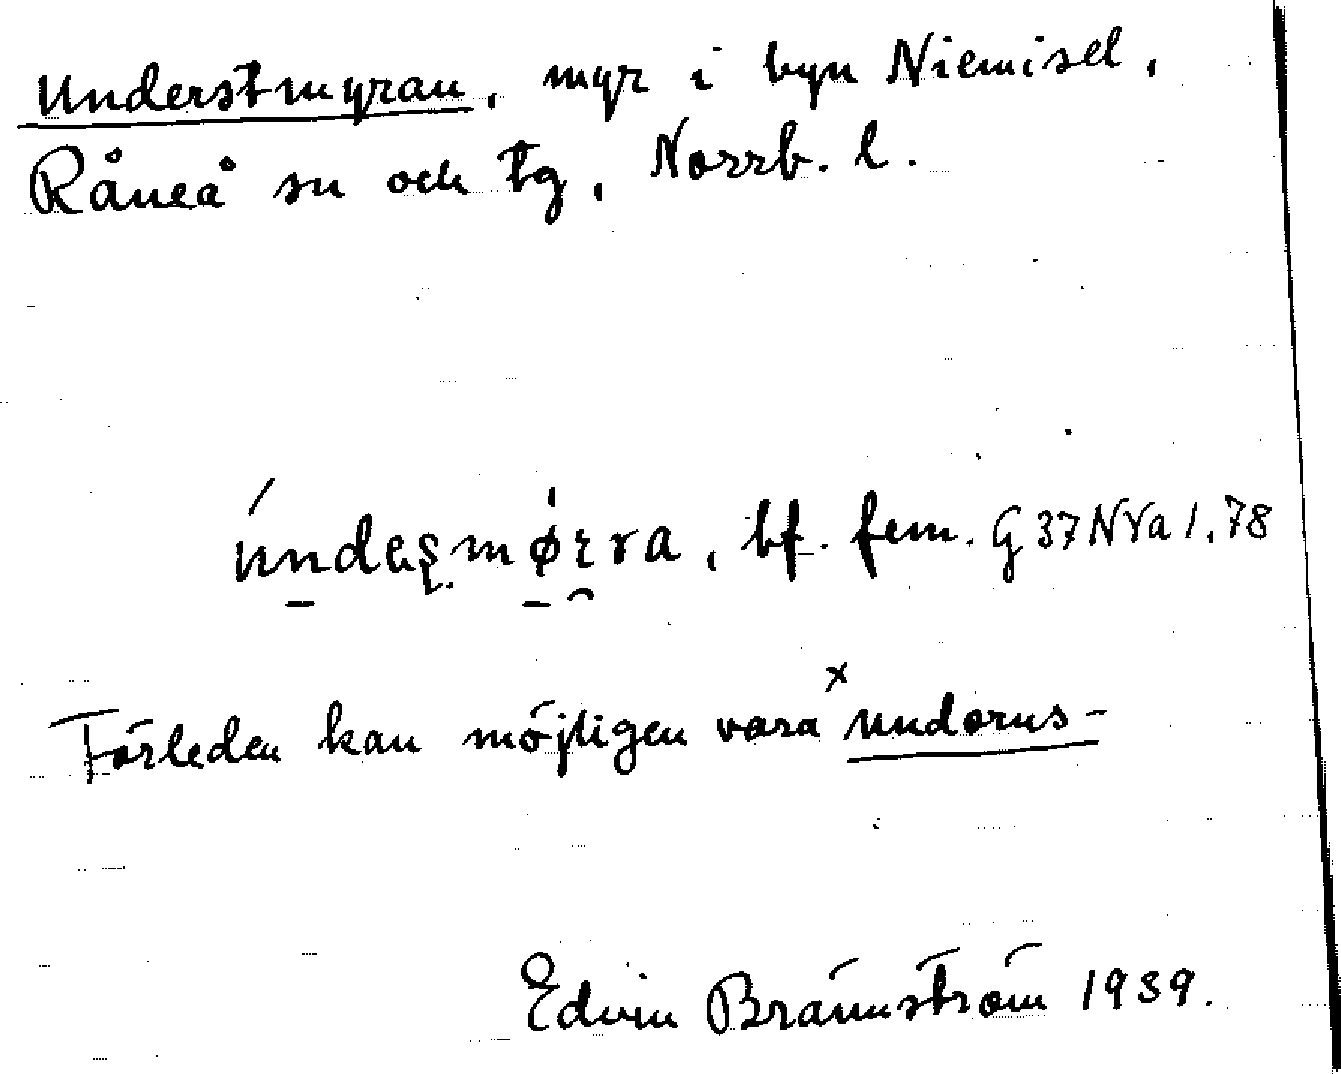 Understmyran, myr i byn Niemisel,
Råneå sn och tg, Norrb. l.
bf. fem. G 37 NYa 1.78
Förleden kan möjligen vara ˣundorns-
Edvin Brännström 1939.